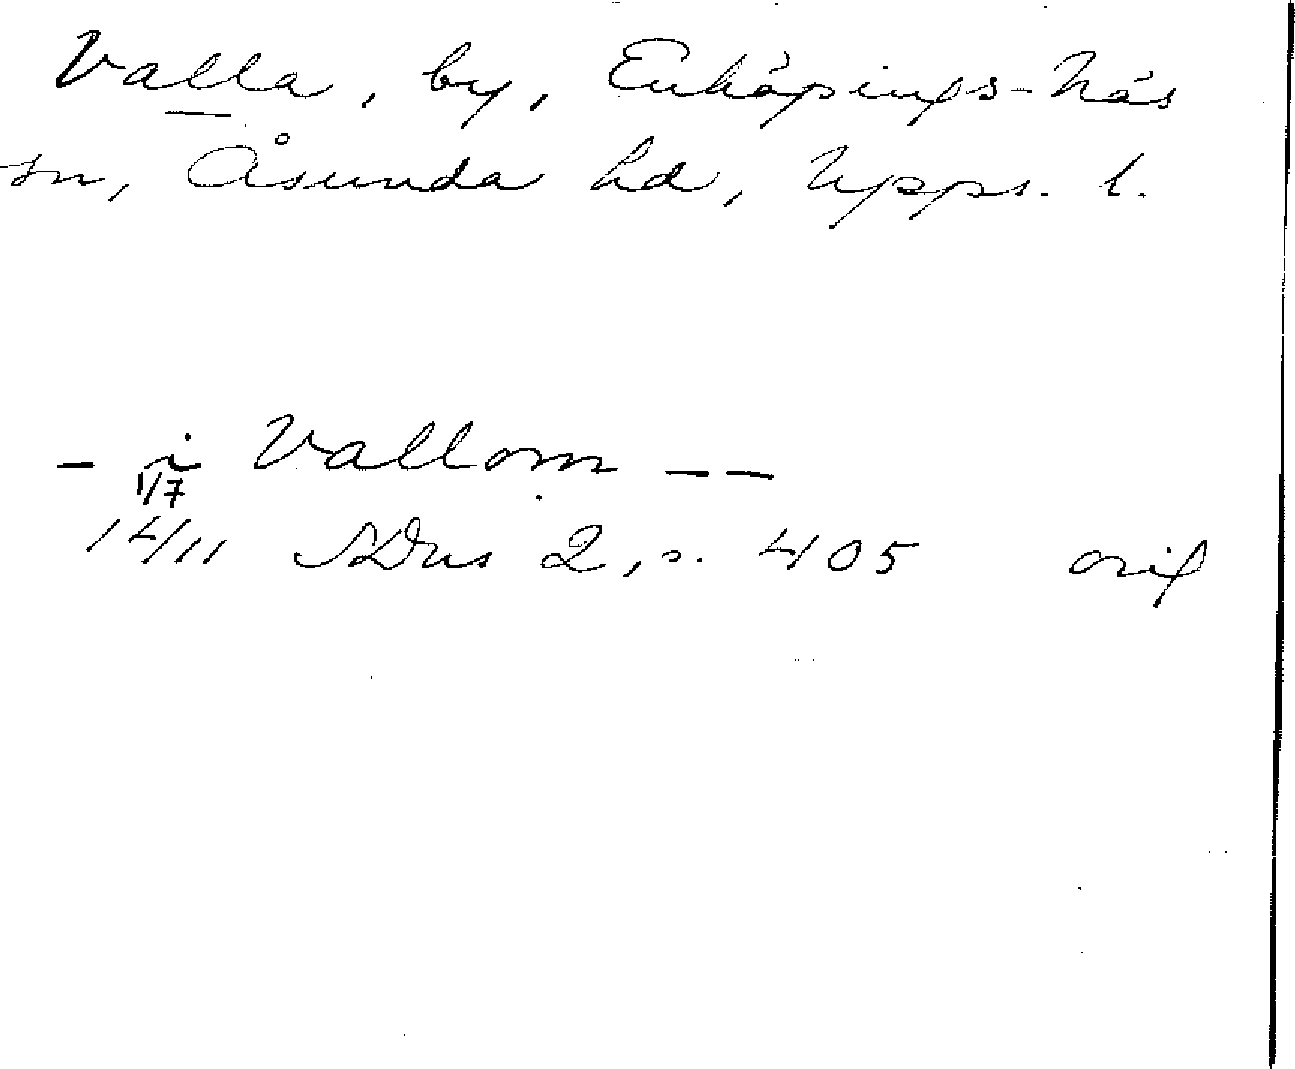 Valla, by, Enköpings-Näs
sn, Åsunda hd, Upps. l.
- i Vallom - -
1/7
1411 SDns 2, s. 405 orig